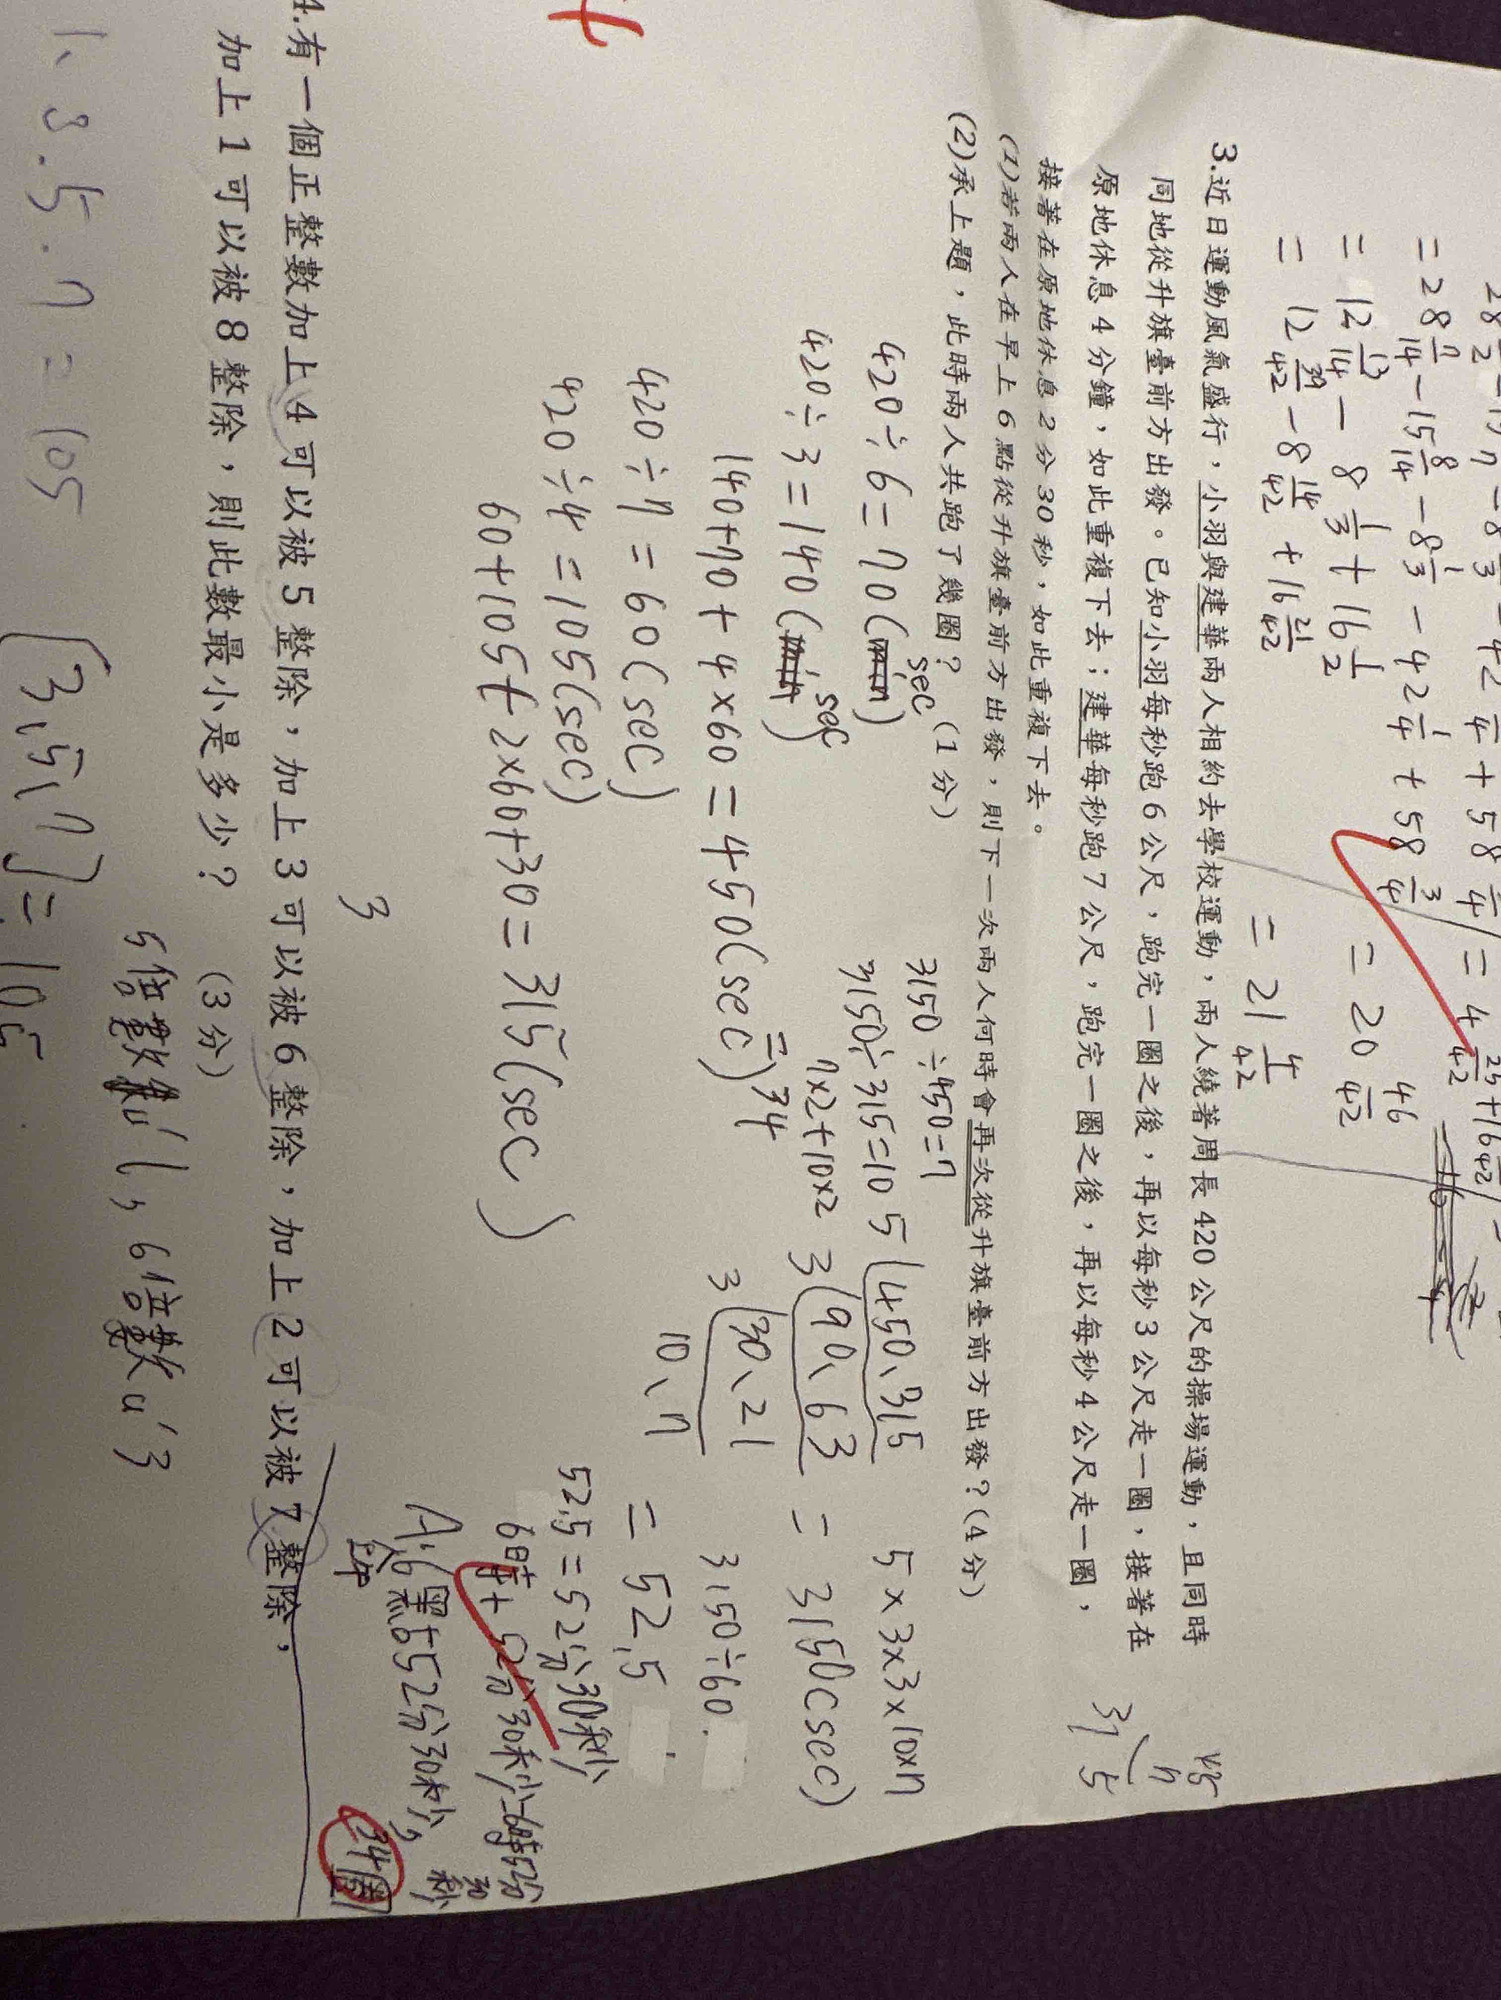 = 28 7/14 - 15 8/14 - 8 1/3 - 42 1/4 + 58 3/4
= 12 13/14 - 8 1/3 + 16 1/2
= 20 46/42
= 12 39/42 - 8 14/42 + 16 21/42
= 21 4/42
3.近日運動風氣盛行，小羽與建華兩人相約去學校運動，兩人繞著周長420公尺的操場運動，且同時
同地從升旗臺前方出發。已知小羽每秒跑6公尺，跑完一圈之後，再以每秒3公尺走一圈，接著在
原地休息4分鐘，如此重複下去；建華每秒跑7公尺，跑完一圈之後，再以每秒4公尺走一圈，
接著在原地休息2分30秒，如此重複下去。
(1)若兩人在早上6點從升旗臺前方出發，則下一次兩人何時會再次從升旗臺前方出發？(4分)
(2)承上題，此時兩人共跑了幾圈？(1分)
315
420÷6=70(sec)
420÷3=140(sec)
140+70+4×60=450(sec)
420÷7=60(sec)
420÷4=105(sec)
60+105+2×60+30=315(sec)
3150÷450=7
3150÷315=10
7×2+10×2
=34
5 450、315
3 90、63
3 30、21
10、7
5×3×3×10×7
=3150(sec)
3150÷60
=52.5
52.5=52分30秒
6時+52分30秒=6時52分30秒
A:上午6點52分30秒，34圈
3
4.有一個正整數加上4可以被5整除，加上3可以被6整除，加上2可以被7整除，
加上1可以被8整除，則此數最小是多少？ (3分)
5倍數有1，6倍數有3
1、3.5.7=105
[3,5,7]=105